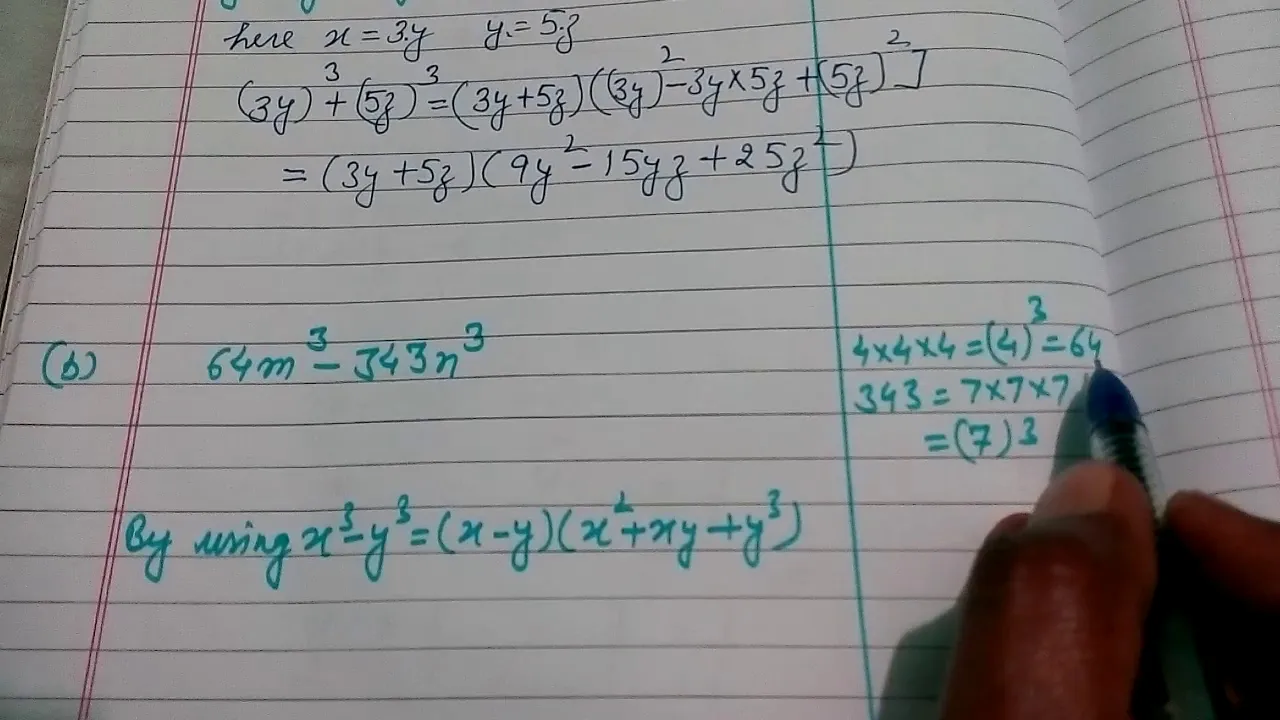 here x = 3y y = 5z
(3y)³ + (5z)³ = (3y + 5z) ((3y)² - 3y × 5z + (5z)²]
= (3y + 5z) (9y² - 15yz + 25z²)
(b) 64m³ - 343n³
4×4×4 = (4)³ = 64
343 = 7×7×7
= (7)³
By using x³ - y³ = (x - y) (x² + xy + y³)